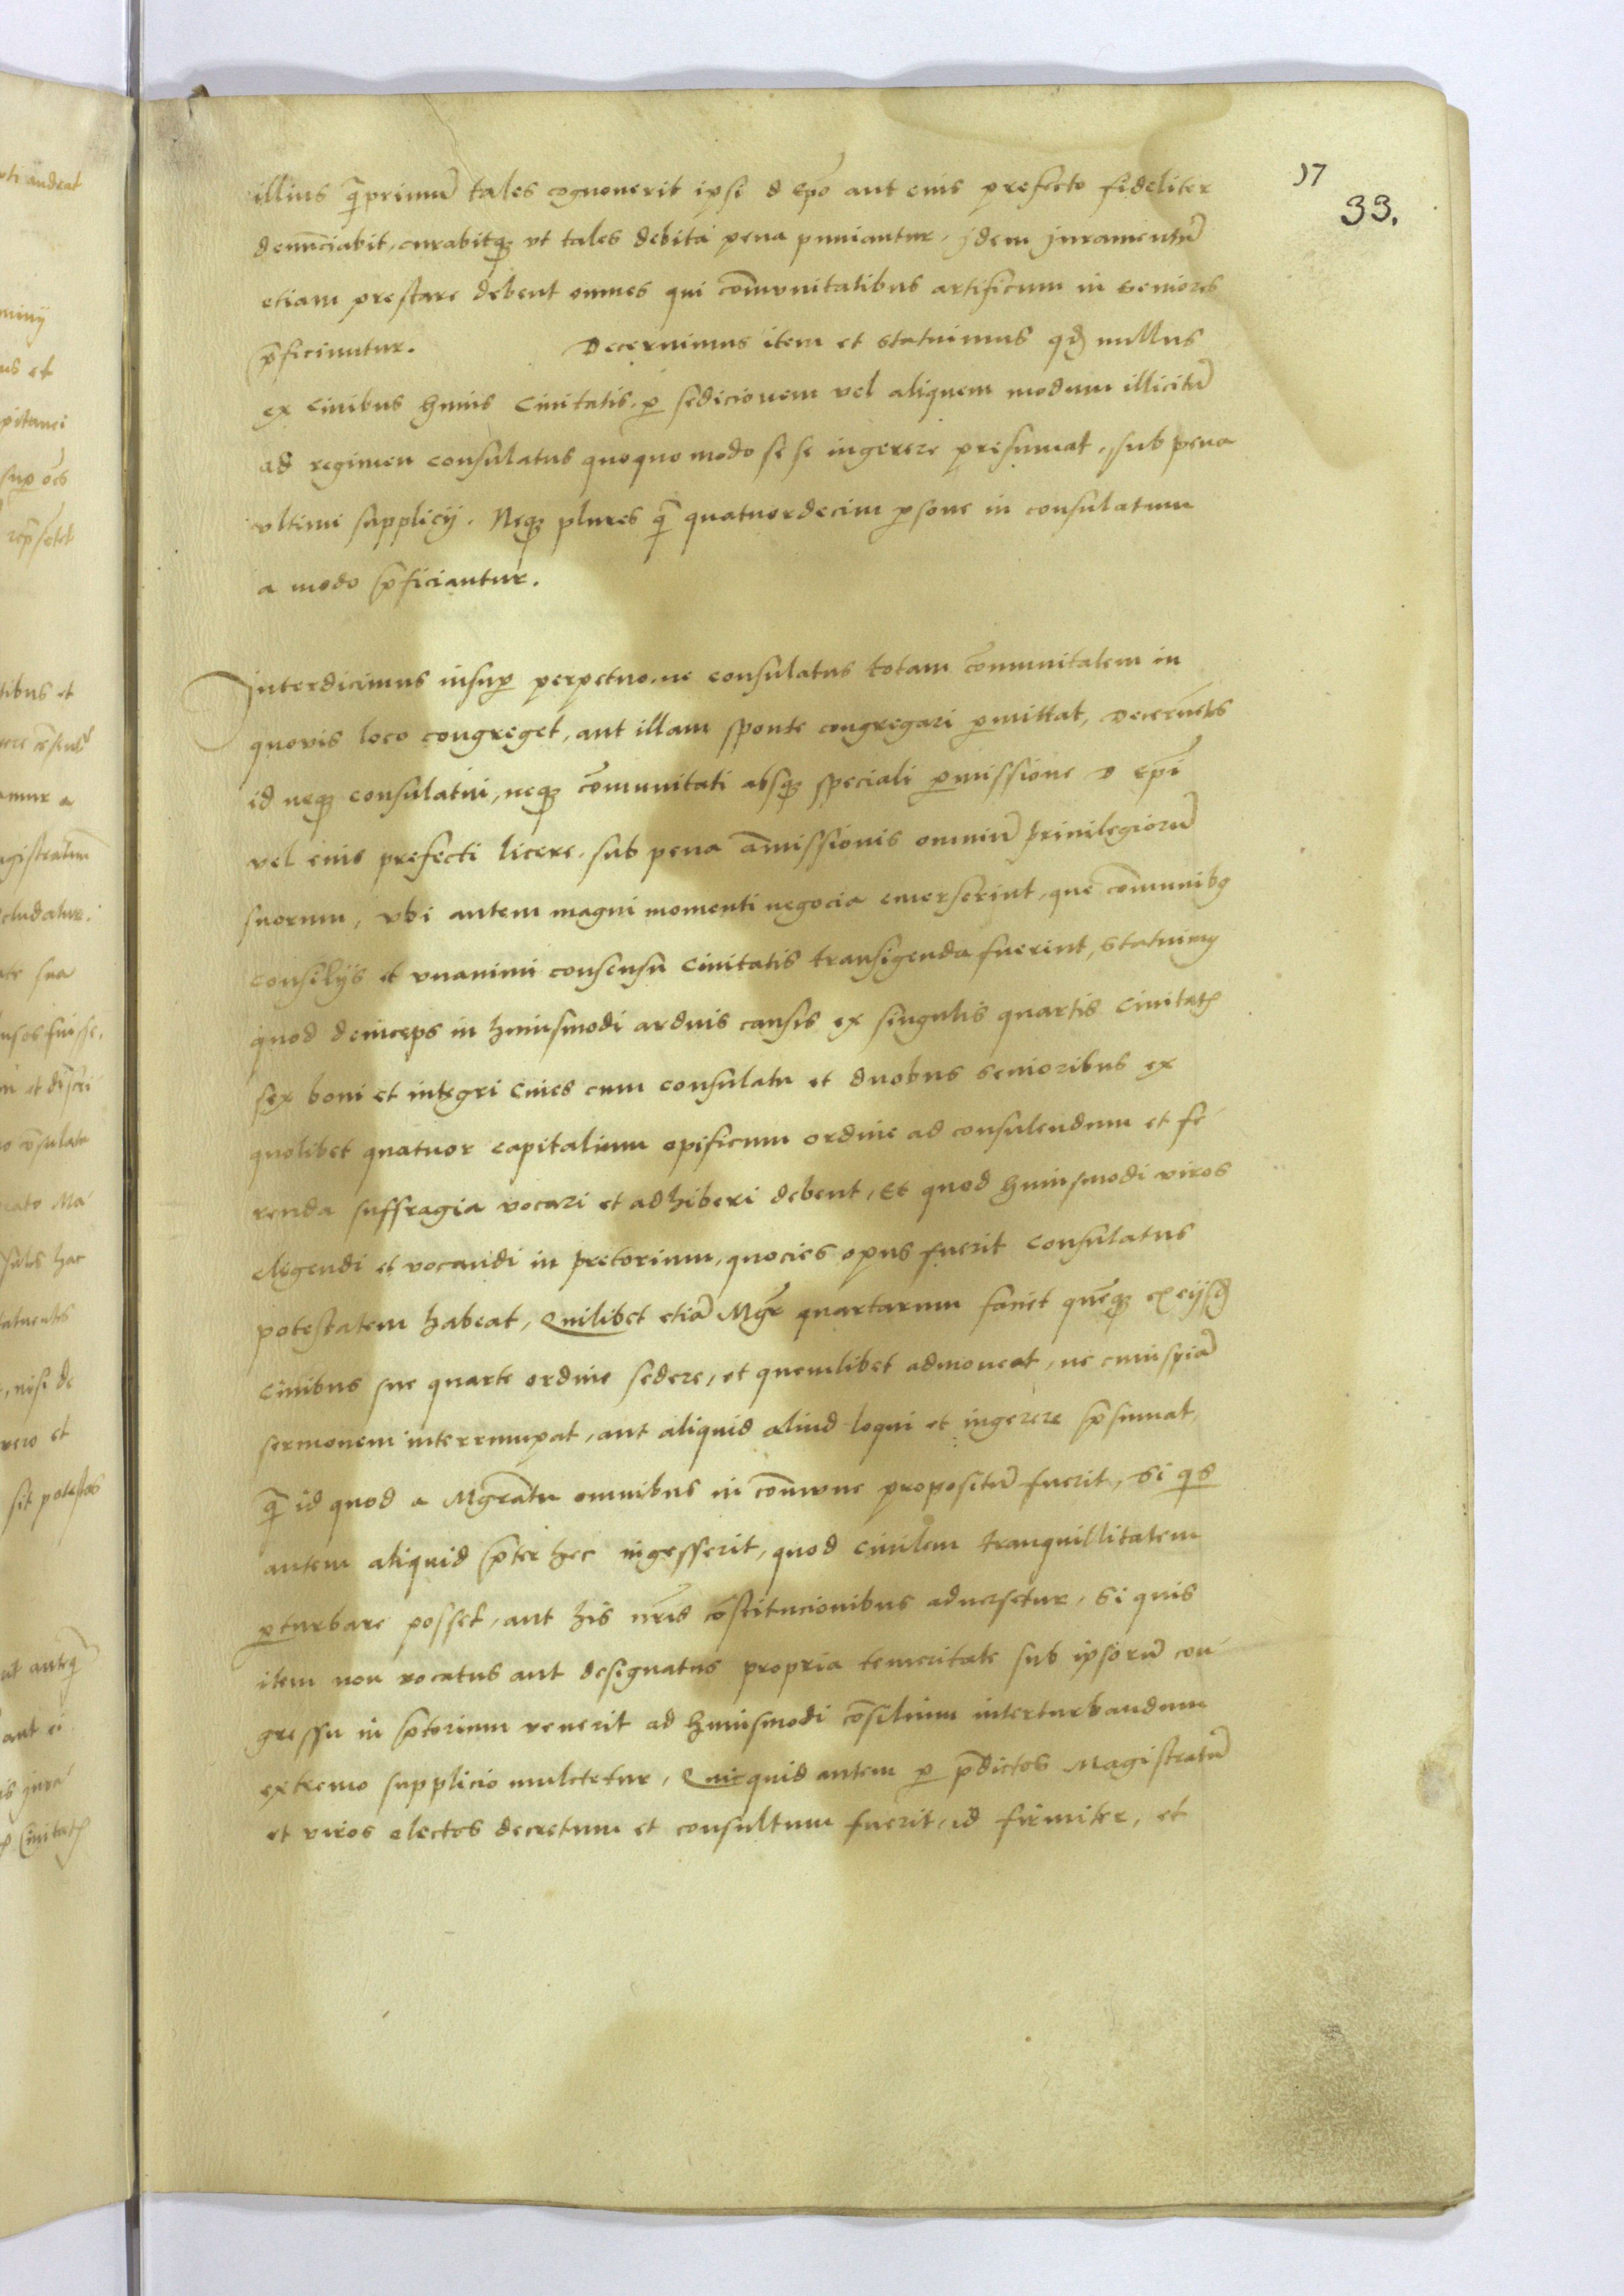 17
33.
illius q̄primū tales cognouerit ipsi d ep̄o aut eius prefecto fideliter
denūciabit, curabitq; vt tales debita pena puniantur. jdem juramentū
etiam prestare debent omnes qui cōmvnitatibus artificum in seniores
p̄ficiuntur. Decernimus item et statuimus qđ nullus
ex ciuibus huius ciuitatis, ꝑ sedicionem vel aliquem modum illicitū
ad regimen consulatus quoquo modo se se ingerere presumat, sub pena
vltimi supplicij. Neq; plures q̄ quatuordecim ꝑsone in consulatum
a modo p̄ficiantur.
Interdicimus insuꝑ perpetuo, ne consulatus totam cōmunitatem in
quovis loco congreget, aut illam sponte congregari ꝑmittat, Decernētes
id neq; consulatui, neq; cōmunitati absq; speciali ꝑmissione d ep̄i
vel eius prefecti licere, sub pena āmissionis omniū priuilegiorū
suorum, vbi autem magni momenti negocia emerserint, que cōmunibꝫ
consilijs et vnanimi consensu ciuitatis transigenda fuerint, statuimꝰ
quod deinceps in huiusmodi arduis causis ex singulis quartis ciuitatꝭ
sex boni et integri ciues cum consulatu et duobus senioribus ex
quolibet quatuor capitalium opificum ordine ad consulendum et fe-
renda suffragia vocari et adhiberi debent, Et quod huiusmodi viros
eligendi et vocandi in pretorium, quocies opus fuerit consulatus
potestatem habeat, Quilibet etiā Mgr̄ quartarum faciet quēq; ex eijsđ
ciuibus sue quarte ordine sedere, et quemlibet admoneat, ne cuiuspiā
sermonem interrumpat, aut aliquid aliud loqui et ingerere p̄sumat,
q̄ id quod a Mgr̄atu omnibus in cōmvne propositū fuerit, Si qis
autem aliquid p̄ter hec ingesserit, quod ciuilem tranquillitatem
ꝑturbare posset, aut his nr̄is cōstitucionibus aduersetur, Si quis
item non vocatus aut designatus propria temeritate sub ipsorū con-
gressu in p̄torium venerit ad huiusmodi cōsilium interturbandum
extremo supplicio mulctetur, Quicquid autem ꝑ p̄dictos Magistratū
et viros electos decretum et consultum fuerit, id firmiter, et